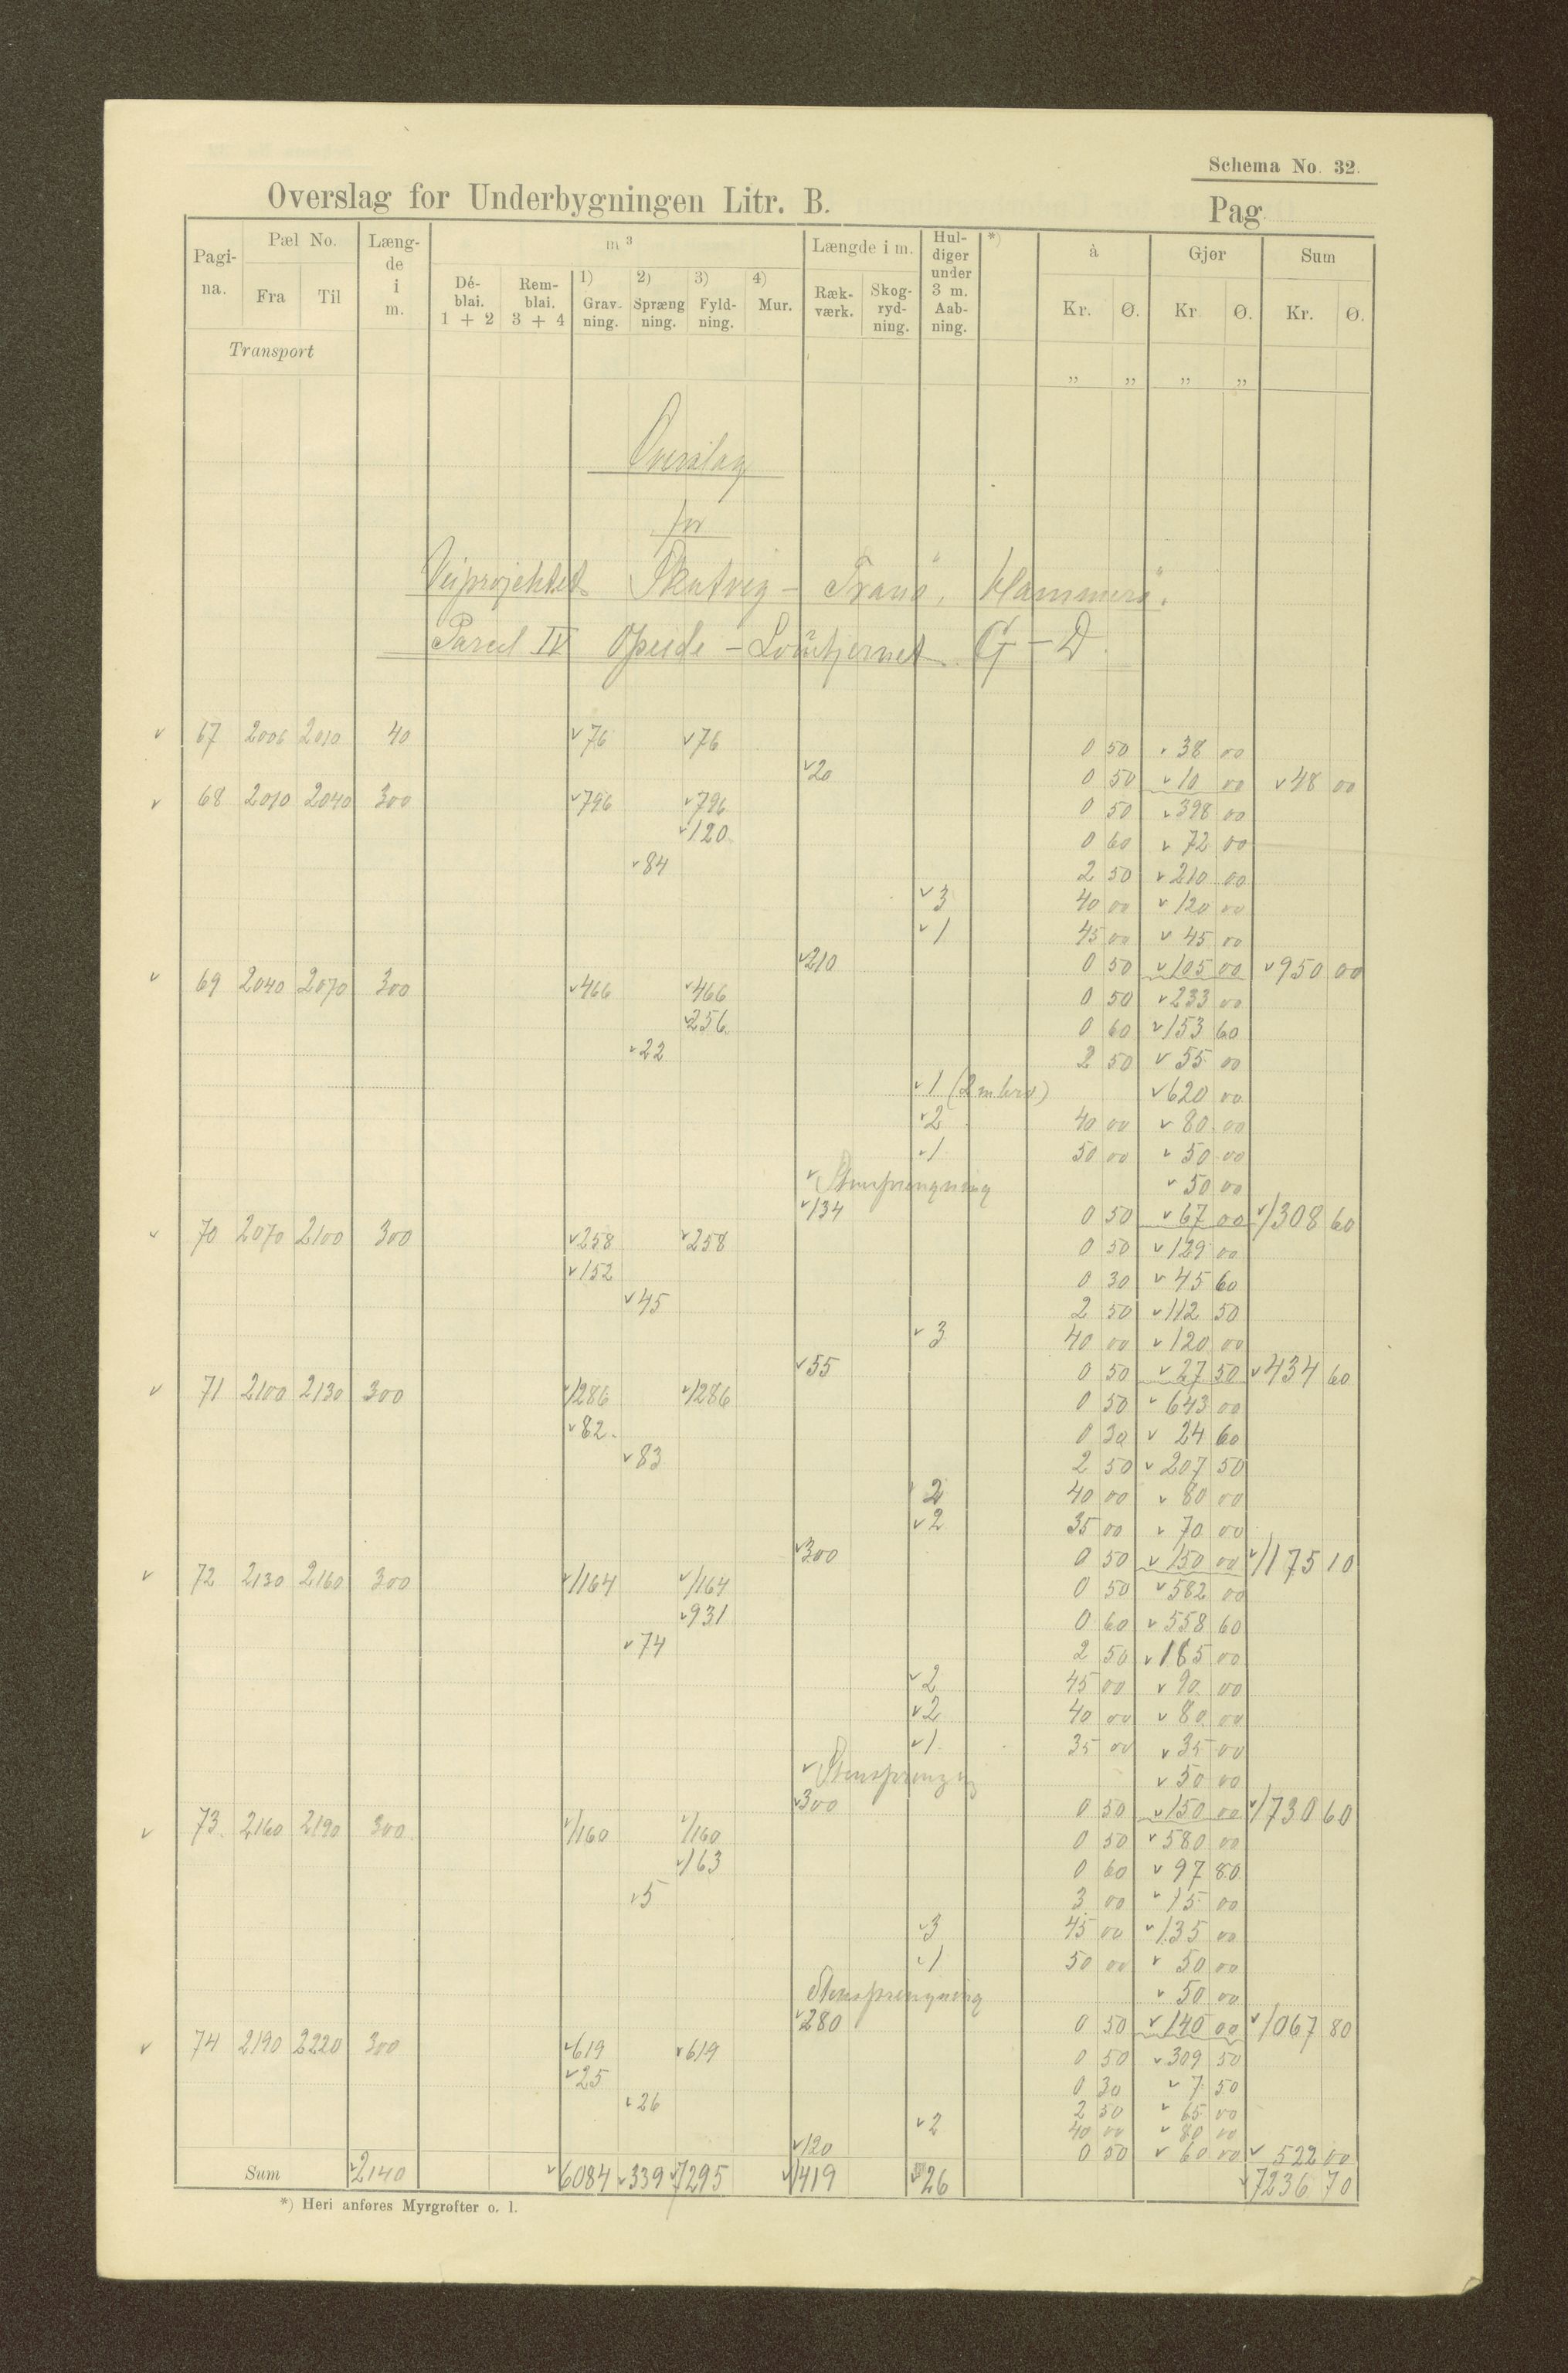 Schema No. 32.
Overslag for Underbygningen Litr. B. Pag.
Pagina. Pæl No. Fra Til Længde i m. m³ Déblai. 1 + 2 Remblai. 3 + 4 1) Gravning. 2) Sprængning. 3) Fyldning. 4) Mur. Længde i m. Rækværk. Skogrydning. Huldiger under 3 m. Aabning. *) à Kr. Ø. Gjør Kr. Ø. Sum Kr. Ø.
Transport
„ „ „ „
Overslag
for
Veiprojektet Skutvig - Tranö, Hammerö.
Parcel IV Opeide - Lövtjernet G - D.
v 67 2006 2010 40 v 76 v 76 0 50 v 38 00
v 20 0 50 v 10 00 v 48 00
v 68 2010 2040 300 v 796 v 796 0 50 v 398 00
v 120 0 60 v 72 00
v 84 2 50 v 210 00
v 3 40 00 v 120 00
v 1 45 00 v 45 00
v 210 0 50 v 105 00 v 950 00
v 69 2040 2070 300 v 466 v 466 0 50 v 233 00
v 256 0 60 v 153 60
v 22 2 50 v 55 00
v 1 (2 m bro) v 620 00
v 2 40 00 v 80 00
v 1 50 00 v 50 00
v Stensprengning v 50 00
v 134 0 50 v 67 00 v 1308 60
v 70 2070 2100 300 v 258 v 258 0 50 v 129 00
v 152 0 30 v 45 60
v 45 2 50 v 112 50
v 3 40 00 v 120 00
v 55 0 50 v 27 50 v 434 60
v 71 2100 2130 300 v 1286 v 1286 0 50 v 643 00
v 82 0 30 v 24 60
v 83 2 50 v 207 50
v 2 40 00 v 80 00
v 2 35 00 v 70 00
v 300 0 50 v 150 00 v 1175 10
v 72 2130 2160 300 v 1164 v 1164 0 50 v 582 00
v 931 0 60 v 558 60
v 74 2 50 v 185 00
v 2 45 00 v 90 00
v 2 40 00 v 80 00
v 1 35 00 v 35 00
v Stensprengng v 50 00
v 300 0 50 v 150 00 v 1730 60
v 73 2160 2190 300 v 1160 v 1160 0 50 v 580 00
v 163 0 60 v 97 80
v 5 3 00 v 15 00
v 3 45 00 v 135 00
v 1 50 00 v 50 00
Stensprengning v 50 00
v 280 0 50 v 140 00 v 1067 80
v 74 2190 2220 300 v 619 v 619 0 50 v 309 50
v 25 0 30 v 7 50
v 26 2 50 v 65 00
v 2 40 00 v 80 00
v 120 0 50 v 60 00 v 522 00
Sum v 2140 v 6084 v 339 v 7295 v 1419 v 26 v 7236 70
*) Heri anføres Myrgrøfter o. l.